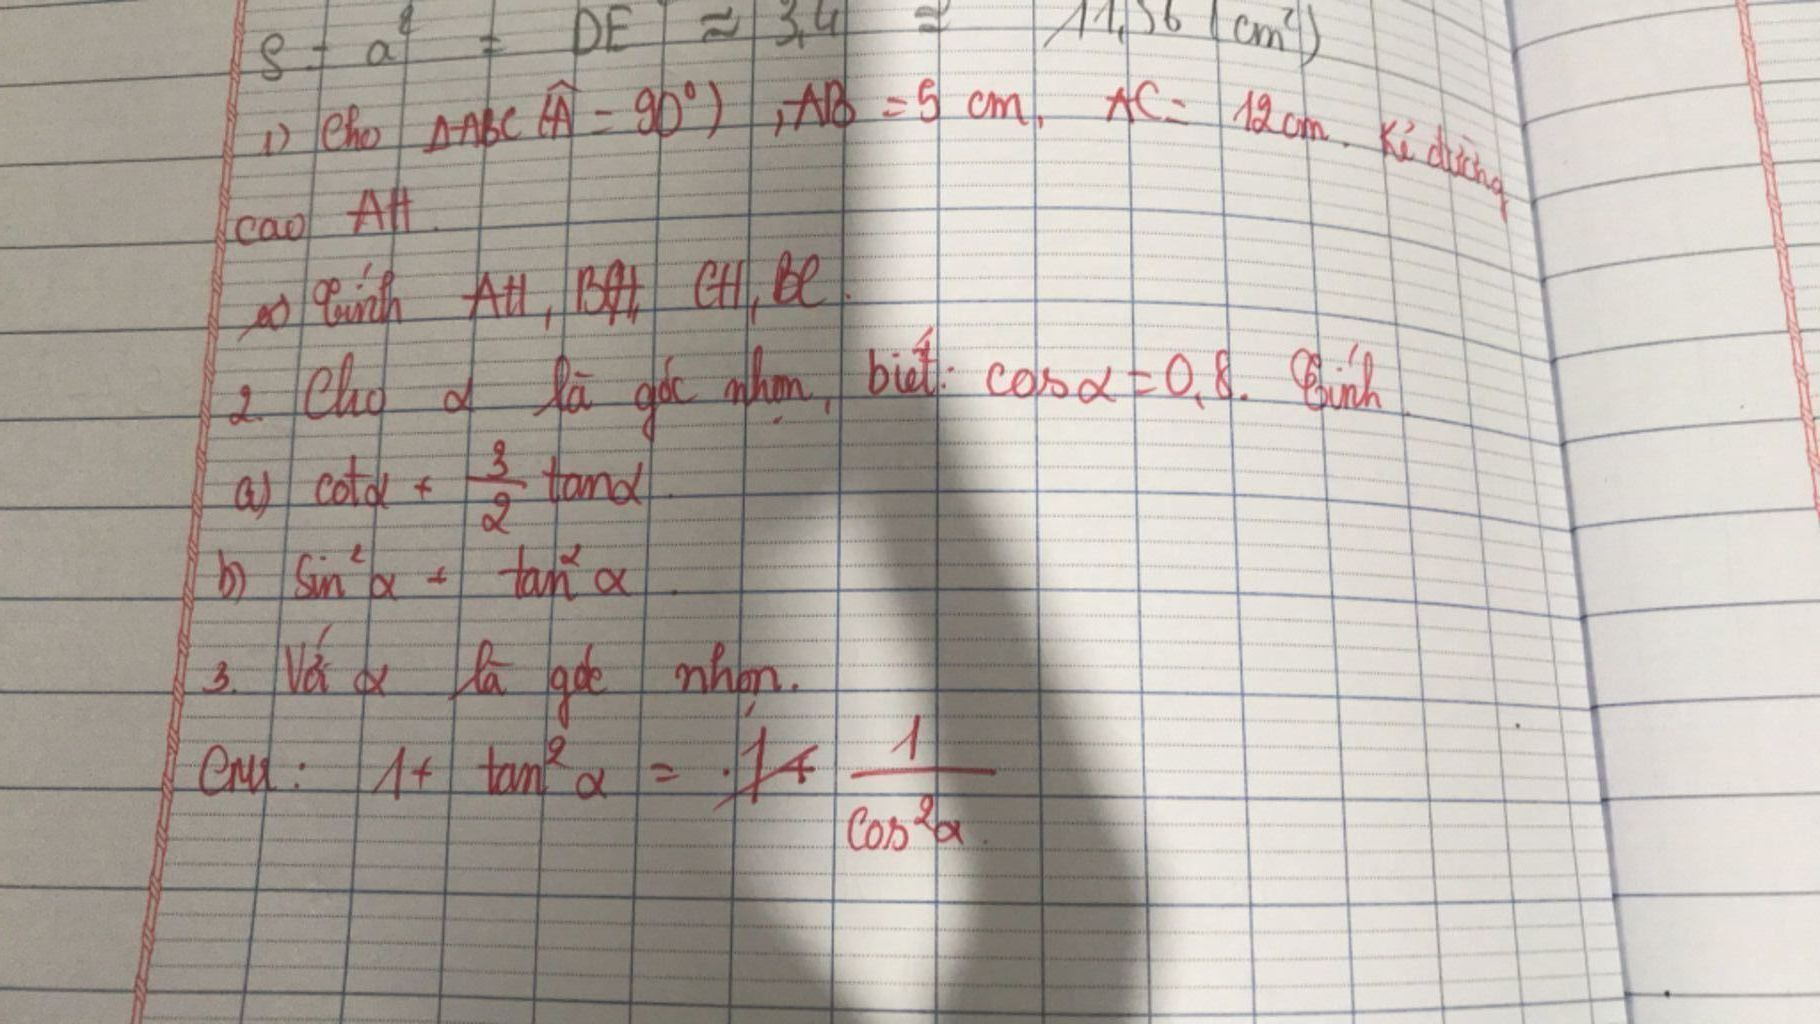 S = a² = DE² ≈ 3,4² = 11,56 (cm²)
1) Cho ΔABC (Â = 90°), AB = 5 cm, AC = 12 cm. Kẻ đường
cao AH.
Tính AH, BH, CH, BC.
2. Cho α là góc nhọn, biết: cos α = 0,8. Tính
a) cot α + 3/2 tan α.
b) sin² α + tan² α.
3. Với α là góc nhọn.
CM: 1 + tan² α = 1/cos² α.